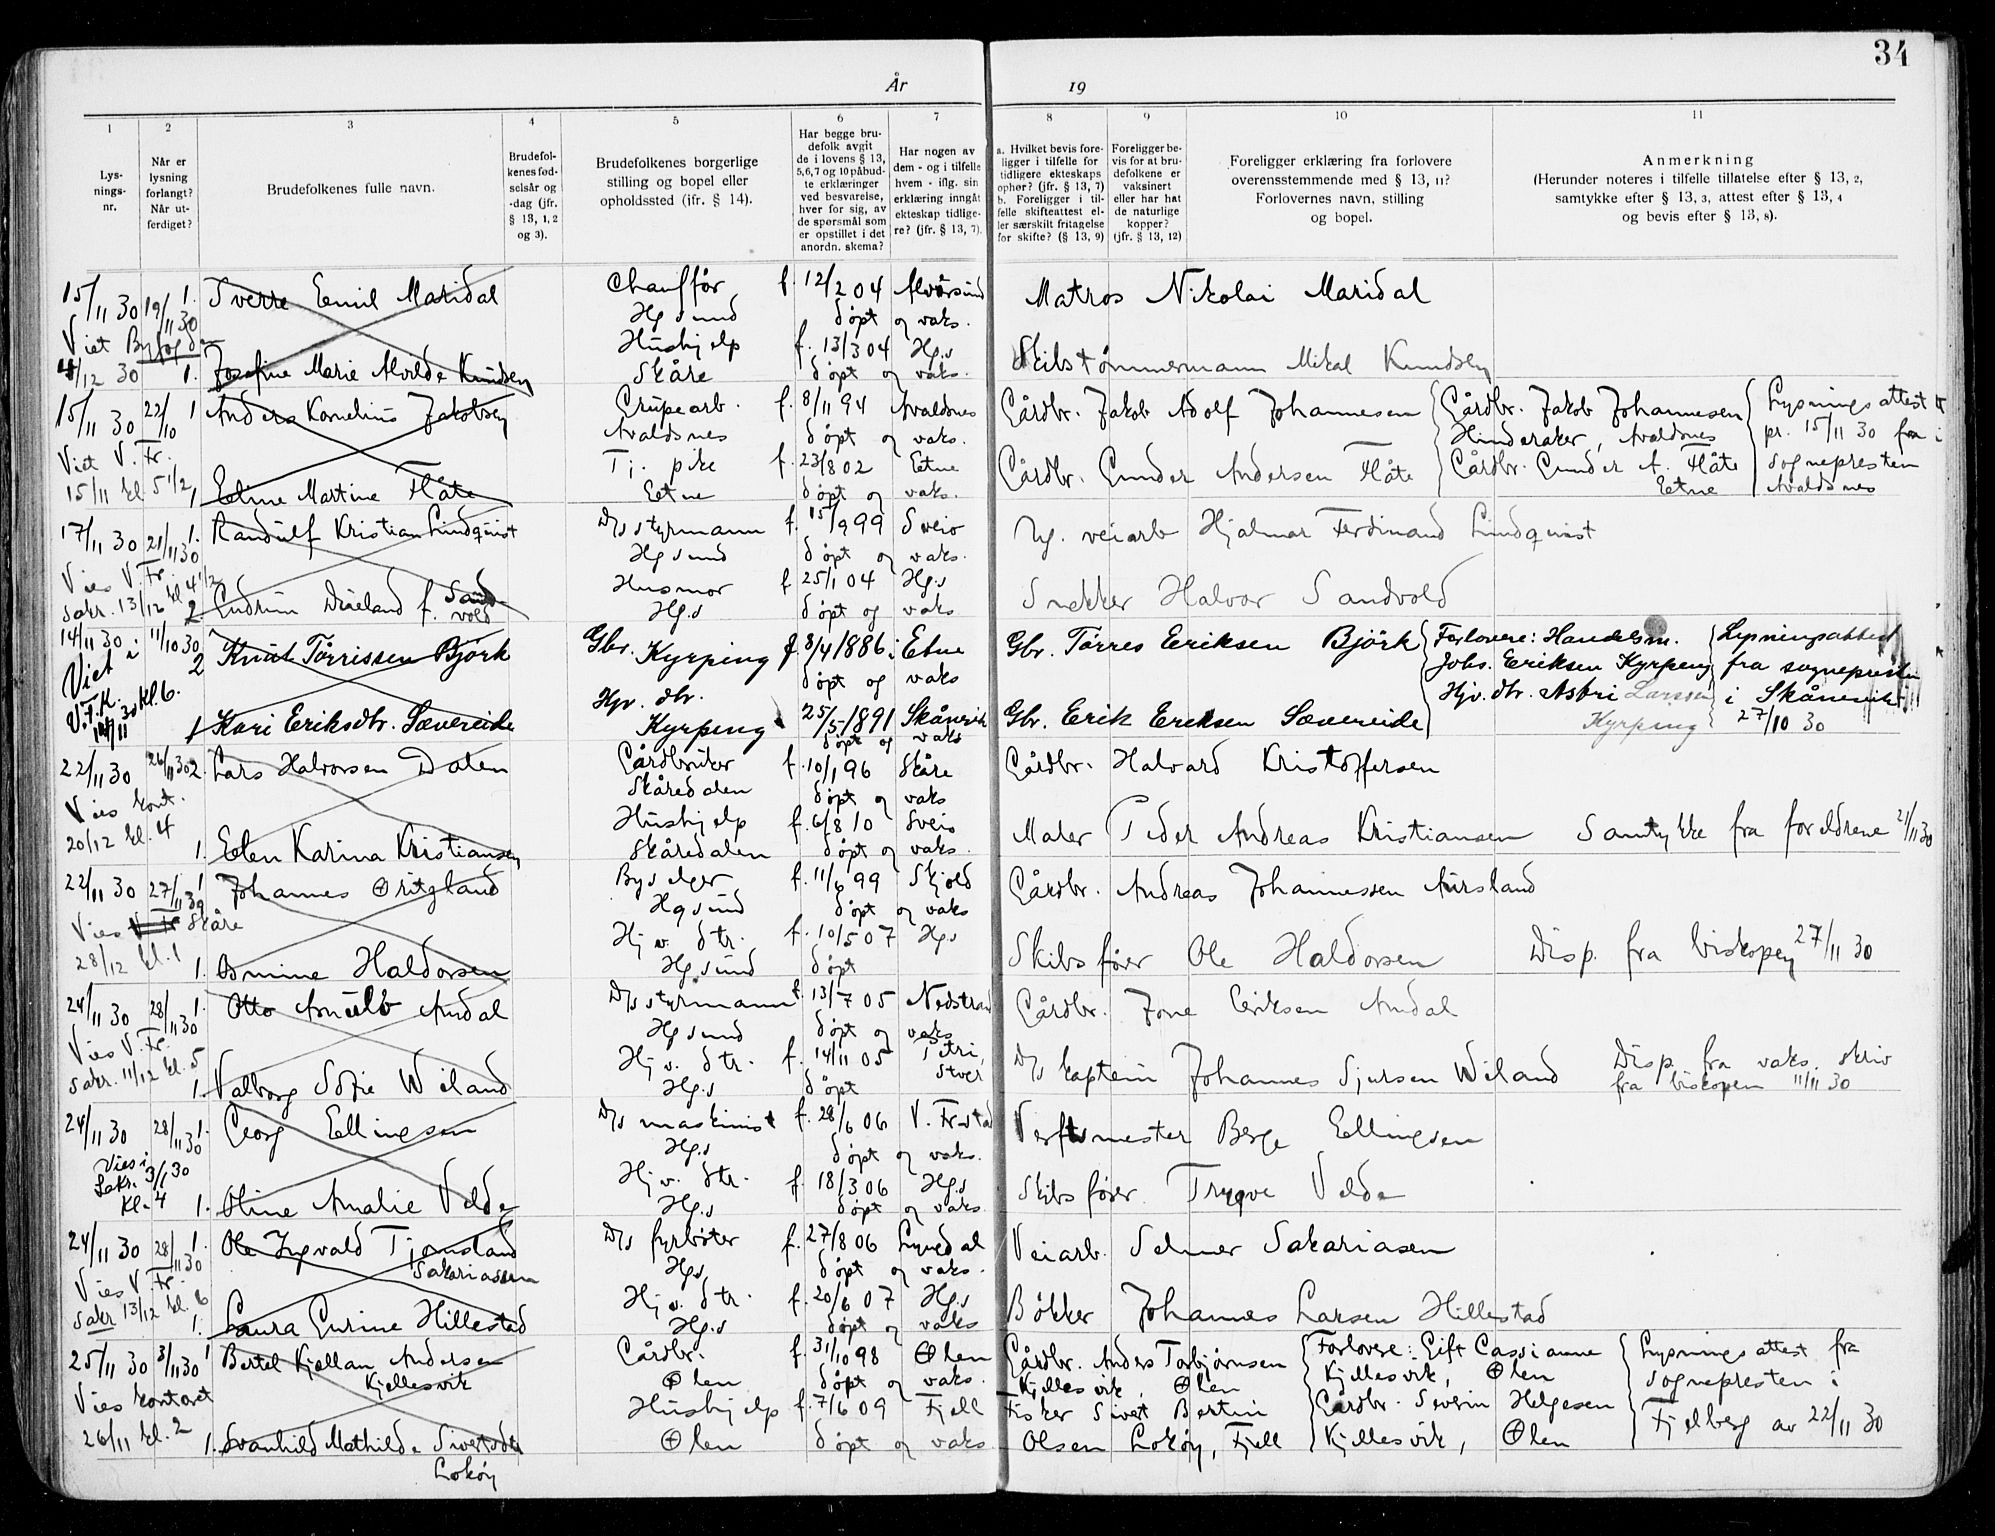 34
År 19
1 2 3 4 5 6 7 8 9 10 11
Lys-
nings-
nr.
Når er
lysning
forlangt?
Når ut-
ferdiget?
Brudefolkenes fulle navn.
Brudefol-
kenes fød-
selsår og
-dag (jfr.
§ 13, 1, 2
og 3).
Brudefolkenes borgerlige
stilling og bopel eller
opholdssted (jfr. § 14).
Har begge bru-
defolk avgit
de i lovens § 13,
5,6,7 og 10 påbud-
te erklæringer
ved besvarelse,
hver for sig, av
de spørsmål som
er opstillet i det
anordn. skema?
Har nogen av
dem - og i tilfelle
hvem - iflg. sin
erklæring inngåt
ekteskap tidlige-
re? (jfr. § 13, 7).
a. Hvilket bevis fore-
ligger i tilfelle for
tidligere ekteskaps
ophør? (jfr. § 13, 7)
b. Foreligger i til-
felle skifteattest el-
ler særskilt fritagelse
for skifte? (§ 13, 9)
Foreligger be-
vis for at bru-
defolkene er
vaksinert
eller har hat
de naturlige
kopper?
(jfr. § 13, 12)
Foreligger erklæring fra forlovere
overensstemmende med § 13, 11?
Forlovernes navn, stilling
og bopel.
Anmerkning
(Herunder noteres i tilfelle tillatelse efter § 13, 2,
samtykke efter § 13, 3, attest efter § 13, 4
og bevis efter § 13, 8).
15/11 30 19/11 30 1. Sverre Emil Maridal Chauffør f. 12/2 04 Matros Nikolai Maridal
Hgsund døpt og vaks.
Viet Byfogden Hushjelp f. 13/3 04 Hg.s
4/12 30 1. Josefine Marie Alvilde Knudsen Skåre døpt og vaks. Skibstømmermann Mikal Knudsen
15/11 30 22/10 1 Anders Kornelius Jakobsen Grupearb. f. 8/11 94 Avaldsnes Gårdbr. Jakob Adolf Johannesen Gårdbr. Jakob Johannesen Lysningsattest
Avaldsnes døpt og vaks. Hinderaker, Avaldsnes pr. 15/11 30 fra
Viet V. Fr. Tj. pike f. 23/8 02 Etne Gårdbr. Gunder Andersen Flåte Gårdbr. Gunder A. Flåte sognepresten
15/11 kl. 5 1/2 1 Eline Martine Flåte Etne døpt og vaks. Etne Avaldsnes
17/11 30 21/11 30 1. Randulf Kristian Lindquist D/s styrmann f. 15/9 99 Sveio veiarb Hjalmar Ferdinand Lindquist
Hgsund døpt og vaks.
Vies V. Fr. kl 4 1/2 Husmor f. 25/1 04 Hg.s
sakr. 13/12 2 Gudrun f. Sandvold Hg.s døpt og vaks Snekker Halvor Sandvold
14/11 30 11/10 30 2 Knut Tørrissen Bjørk Gbr. Kyrping f. 8/4 1886 i Etne Gbr. Tørres Eriksen Bjørk Forlovere: Handelsm. Lysningsattest
Viet i døpt og vaks Johs. Eriksen Kyrping fra sognepresten
V.F.K. kl 6. Hjv. dtr. Hjv. dtr. Astri Larssen i Skånevik
14/11 30 1 Kari Eriksdtr. Sævereide Kyrping 25/5 1891 Skånevik Gbr. Erik Eriksen Sævereide Kyrping 27/10 30
døpt og vaks
22/11 30 26/11 30 2. Lars Halvorsen Dalen Gårdbruker f. 10/1 96 Skåre Gårdbr. Halvard Kristoffersen
Skåredalen døpt og vaks
Vies kont. Hushjelp f. 6/8 10 Sveio
20/12 kl. 4 1. Ellen Karina Kristiansen Skåredalen døpt og vaks. Maler Peder Andreas Kristiansen Samtykke fra foreldrene 21/11 30
22/11 30 27/11 30 1 Johannes Øritsland Byselger f. 11/6 99 Skjold Gårdbr. Andreas Johannessen
Hgsund døpt og vaks
Vies Skåre Hjv. dtr. f. 10/5 07 Hgs
28/12 kl. 1 1. Haldorsen Hgsund døpt Skibsfører Ole Haldorsen Disp. fra biskopen 27/11 30
24/11 30 28/11 30 1. Otto Arnulv Amdal D/s styrmann f. 13/7 05 Nedstrand Gårdbr. Jone Eriksen Amdal
Hgsund døpt og vaks
Vies V. Fr. Hjv. dtr. f. 14/11 05 Petri,
sakr. 11/12 kl. 5 1. Valborg Sofie Wiland Hg.s døpt D/s kaptein Johannes Sjursen Wiland Disp. fra vaks. skriv
fra biskopen 11/11 30
24/11 30 28/11 30 1. Georg Ellingsen D/s maskinist f. 28/6 06 Verftsmester Berge Ellingsen
Hg.s døpt og vaks.
Vies i Hjv. dtr. f. 18/3 06 Hg.s
Sakr. 3/1 30
Kl. 4 1. Oline Amalie Velde Hg.s døpt og vaks. Skibsfører Trygve Velde
24/11 30 28/11 30 1. Ole Ingvald Tjomsland D/s fyrbøter f. 27/8 06 Lyngdal Veiarb. Selmer Sakariasen
Sakariassen Hgs. døpt og vaks.
Vies V. Fr. Hjv. dtr. f. 20/6 07 Hg.s
sakr. 13/12 kl. 6 1. Laura Gurine Hillestad Hg.s døpt og vaks Bøkker Johannes Larsen Hillestad
25/11 30 3/11 30 1 Bertel Kjellan Andersen Gårdbr. f. 31/10 98 Ølen Gårdbr. Anders Torbjørnsen Forlovere: Gift Cassianne Lysningsattest fra
Kjellesvik Ølen døpt og vaks. Kjellesvik, Ølen Kjellesvik, Ølen sognepresten i
Vies kontoret Hushjelp f. 7/6 09 Fjell Fisker Sivert Bertin Gårdbr. Severin Helgesen Fjelberg av 22/11 30
26/11 kl. 2 1. Svanhild Mathilde Sivertsdtr Ølen døpt og vaks. Olsen Lokøy, Fjell Kjellesvik, Ølen
Lokøy